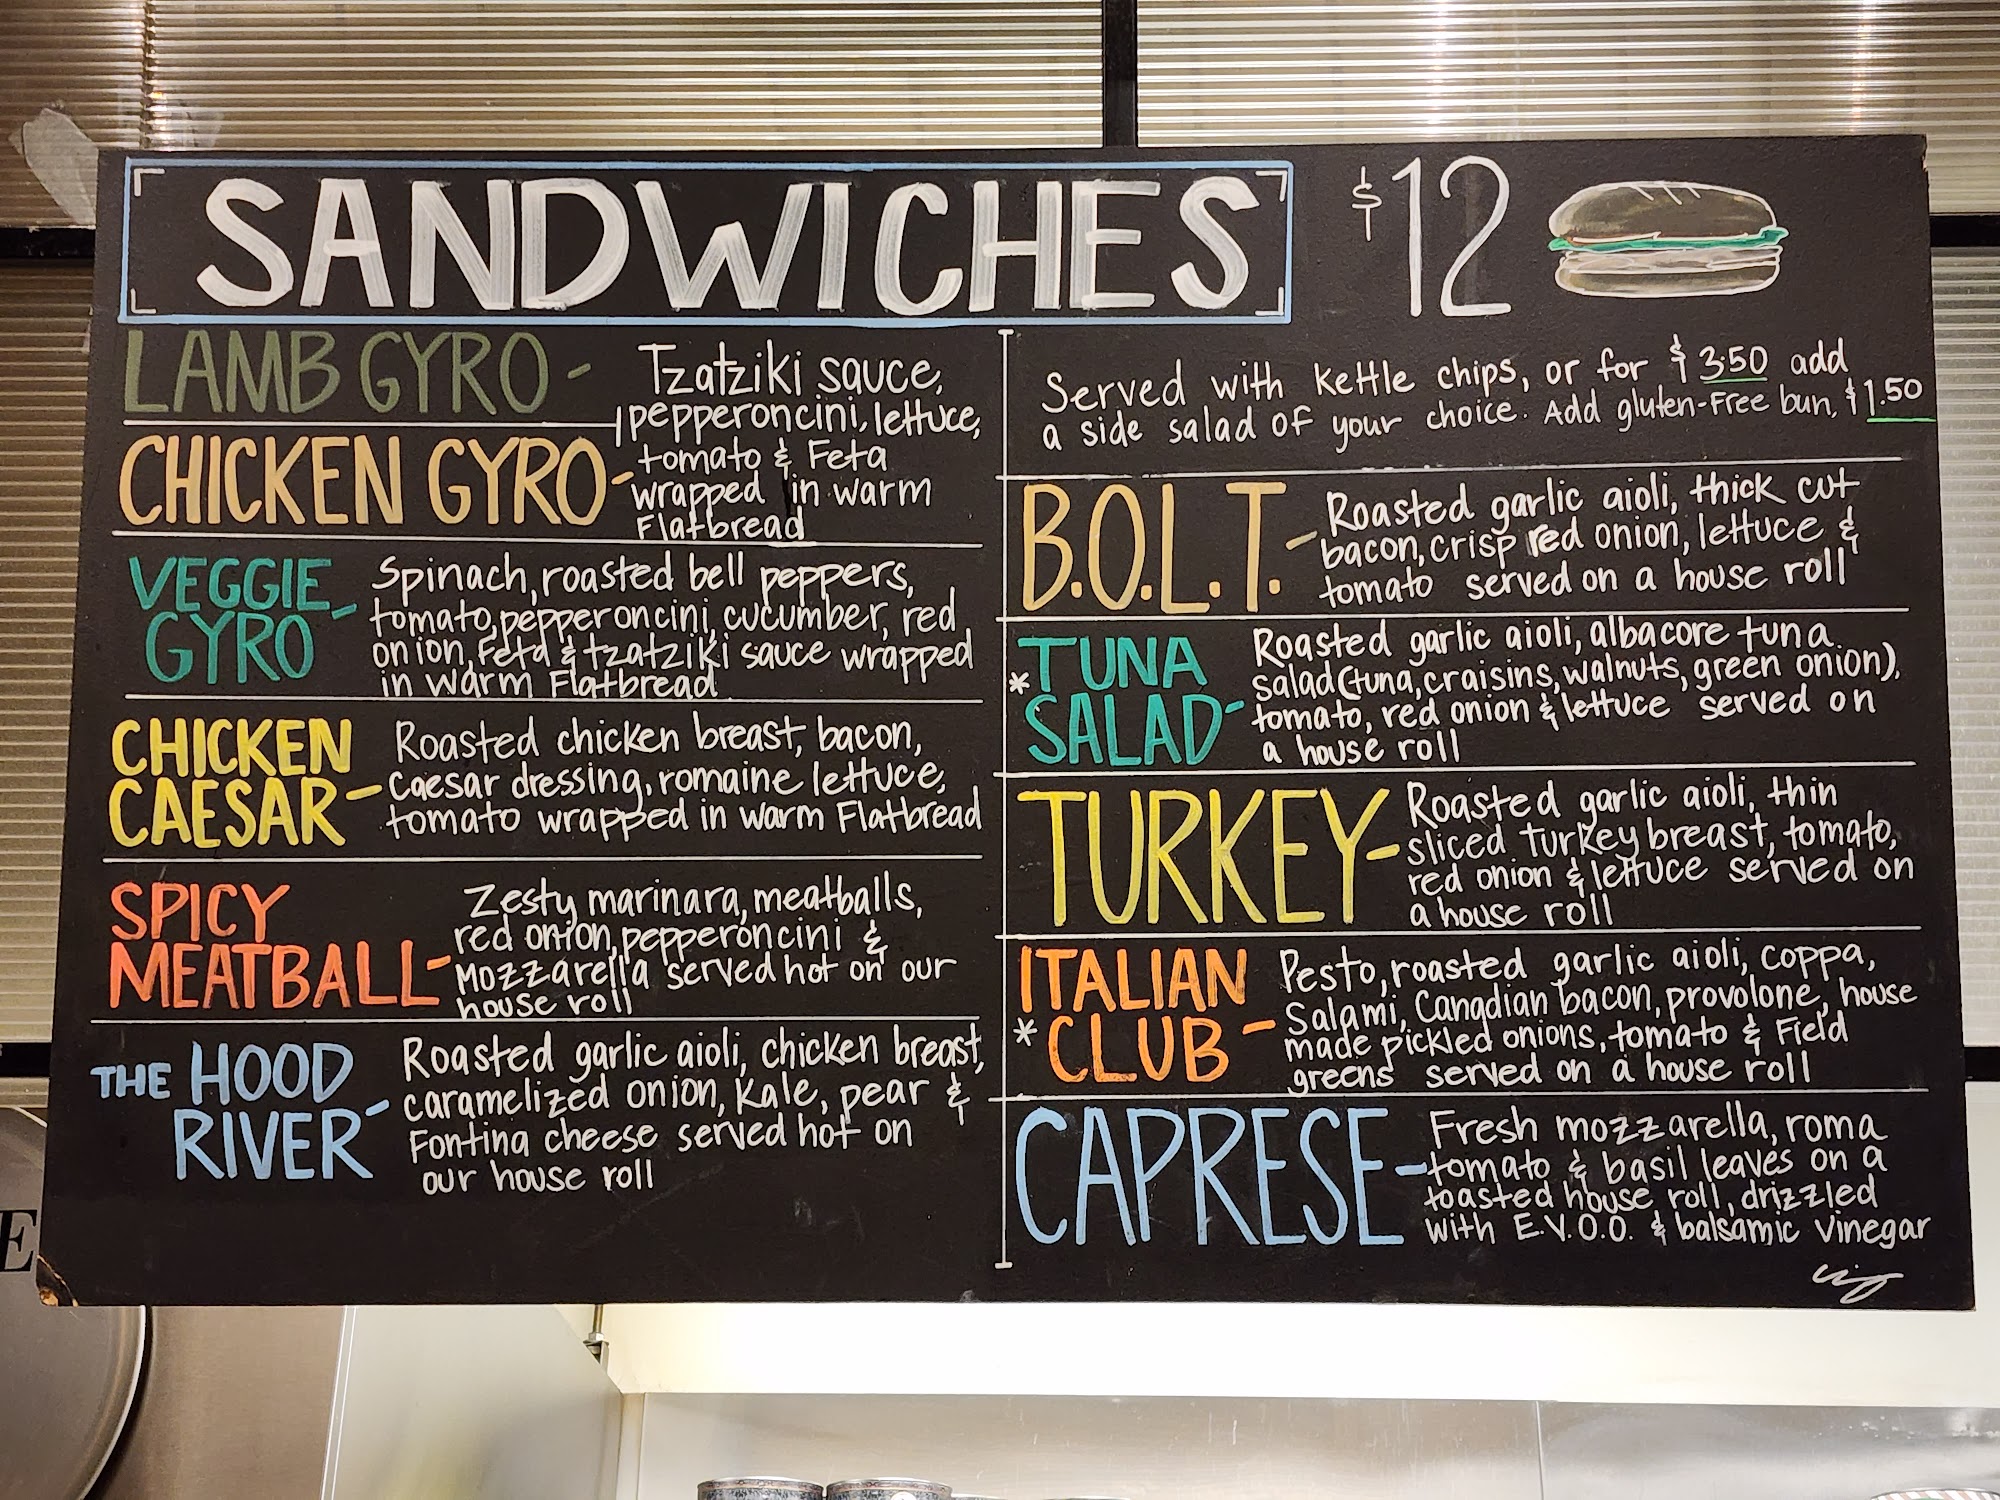 SANDWICHES $12
LAMB GYRO -
CHICKEN GYRO -
Tzatziki sauce,
pepperoncini, lettuce,
tomato & Feta
wrapped in warm
Flatbread
VEGGIE
GYRO -
Spinach, roasted bell peppers,
tomato, pepperoncini, cucumber, red
onion, Feta & tzatziki sauce wrapped
in warm Flatbread
CHICKEN
CAESAR -
Roasted chicken breast, bacon,
Caesar dressing, romaine lettuce,
tomato wrapped in warm Flatbread
SPICY
MEATBALL -
Zesty marinara, meatballs,
red onion, pepperoncini &
Mozzarella served hot on our
house roll
THE HOOD
RIVER -
Roasted garlic aioli, chicken breast,
caramelized onion, kale, pear &
Fontina cheese served hot on
our house roll
Served with Kettle chips, or for $3.50 add
a side salad of your choice. Add gluten-Free bun, $1.50
B.O.L.T. -
Roasted garlic aioli, thick cut
bacon, crisp red onion, lettuce &
tomato served on a house roll
* TUNA
SALAD -
Roasted garlic aioli, albacore tuna
salad (tuna, craisins, walnuts, green onion),
tomato, red onion & lettuce served on
a house roll
TURKEY -
Roasted garlic aioli, thin
sliced turkey breast, tomato,
red onion & lettuce served on
a house roll
ITALIAN
* CLUB -
Pesto, roasted garlic aioli, coppa,
Salami, Canadian bacon, provolone, house
made pickled onions, tomato & Field
greens served on a house roll
CAPRESE -
Fresh mozzarella, roma
tomato & basil leaves on a
toasted house roll, drizzled
with E.V.O.O. & balsamic vinegar
E